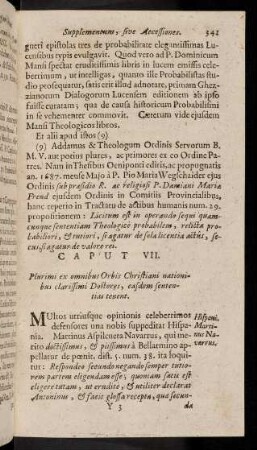 Supplementum, sive Accessiones. 341
gneri epistolas tres de probabilitate elegantissimas Lu-
censibus typis evulgavit. Quod vero ad P. Dominicum
Mansi spectat eruditissimi libris in lucem emissis cele-
berrimum, ut intelligas, quanto ille Probabilistas stu-
dio prosequatur, satis erit illud adnotare, primam Ghez-
zianorum Dialogorum Lucensem editionem ab ipso
fuisse curatam; qua de causa historicum Probabilismi
in se vehementer commovit. Cæterum vide ejusdem
Mansi Theologicos libros.
Et alii apud istos (9)
(9) Addamus & Theologum Ordinis Servorum B.
M. V. aut potius plures, ac primores ex eo Ordine Pa-
tres. Nam in Thesibus Oeniponti editis, ac propugnatis
an. 1687. mense Majo à P. Pio Maria Wegschaider ejus
Ordinis sub præsidio R. ac religiosi P. Damiani Maria
Trend ejusdem Ordinis in Comitiis Provincialibus,
hanc reperio in Tractatu de actibus humanis num. 29.
propositionem: Licitum est in operando sequi quam-
cunque sententiam Theologicè probabilem, relictâ pro-
babiliori, & tutiori, si agatur de sola licentia actûs, se-
cus, si agatur de valore rei.
CAPUT VII.
Plurimi ex omnibus Orbis Christiani nationi-
bus clarissimi Doctores, eandem senten-
tiam tenent.
MUltos utriusque opinionis celeberrimos
defensores una nobis suppeditat Hispa-
nia. Martinus Aspilcueta Navarrus, qui me-
rito doctissimus, & piissimus à Bellarmino ap-
pellatur de pœnit. dist. 5. num. 38. ita loqui-
tur: Respondeo secundo negando semper tutio-
rem partem eligendam esse; quoniam satis est
eligere tutam, ut erudite, & utiliter declarat
Antoninus, & facit glossa recepta, quâ secun-
Hispani.
Marti-
nus Na-
varrus.
Y 3 da